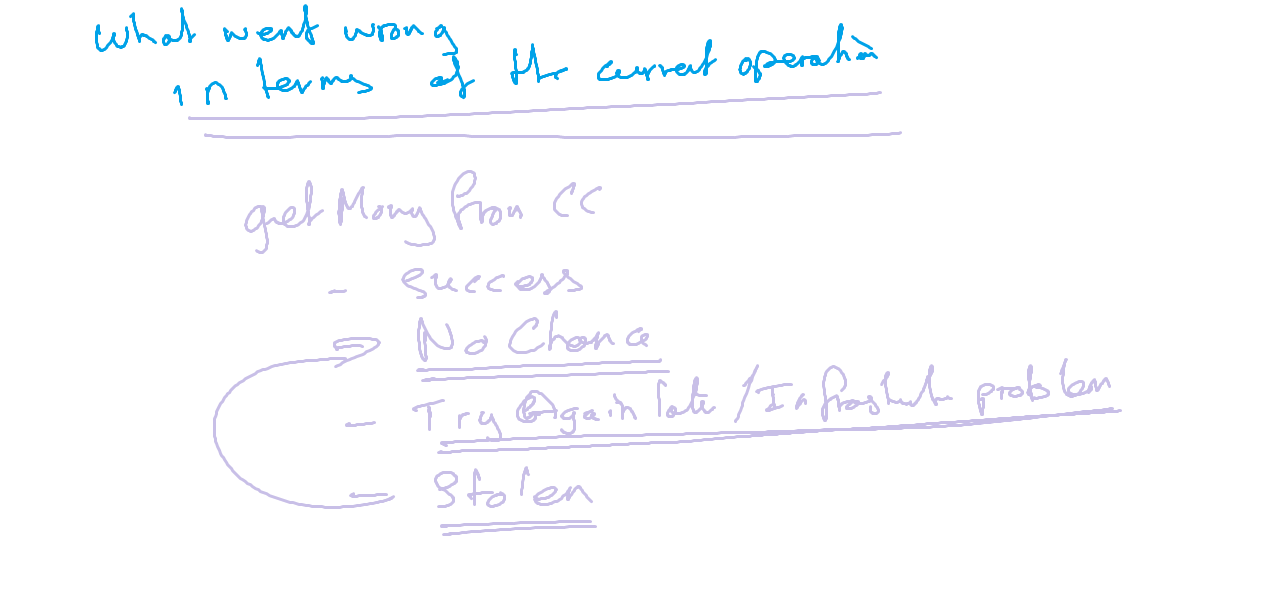 What went wrong
in terms of the current operation
get Mony from CC
- Success
No Chance
- Try Again late / Infrastructure problem
- Stolen